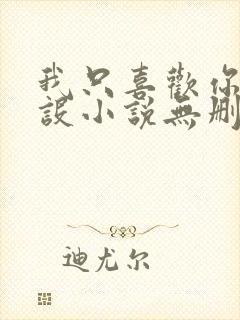 我只喜歡你
設小說無刪
迪尤尔